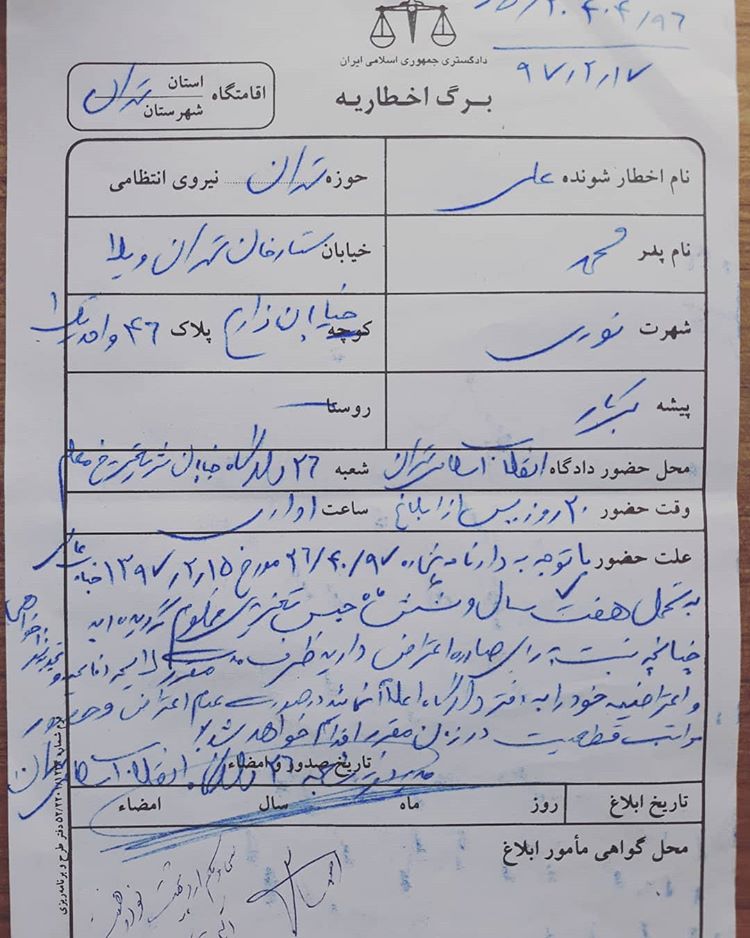 ۹۷/۲/۱۷
دادگستری جمهوری اسلامی ایران
برگ اخطاریه
اقامتگاه استان شهرستان تهران
نام اخطار شونده علی
حوزه تهران نیروی انتظامی
نام پدر محمد
خیابان ستارخان تهران ویلا
شهرت نوری
کوچه خیابان زارع پلاک ۴۶ واحد یک ۱
پیشه بیکار
روستا
محل حضور دادگاه انقلاب اسلامی تهران شعبه ۲۶ دادگاه خیابان شریعتی نرسیده معلم
وقت حضور ۲۰ روز پس از ابلاغ ساعت اداری
علت حضور با توجه به دادنامه شماره ۲۶/۴۰/۹۷ مورخ ۱۳۹۷/۲/۱۵
به تحمل هفت سال و شش ماه حبس تعزیری محکوم گردیده اید
چنانچه نسبت به رای صادره اعتراض دارید ظرف مدت مقرر لایحه
و اعتراضیه خود را به دفتر دادگاه اعلام نمائید در صورت عدم اعتراض و
مراتب قطعیت در زمان مقرر اقدام خواهد شد
تاریخ صدور و امضاء
شعبه ۲۶ دادگاه انقلاب اسلامی تهران
تاریخ ابلاغ روز ماه سال امضاء
محل گواهی مأمور ابلاغ
دفتر طرح و برنامه‌ریزی